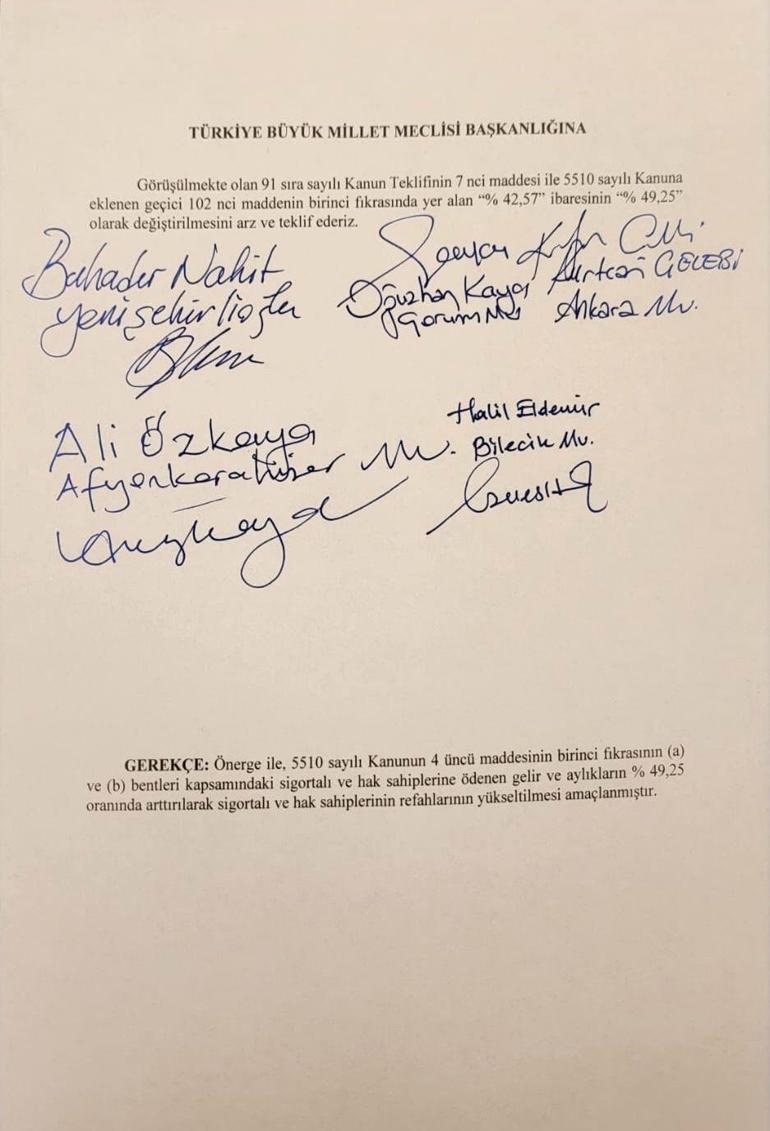 TÜRKİYE BÜYÜK MİLLET MECLİSİ BAŞKANLIĞINA
Görüşülmekte olan 91 sıra sayılı Kanun Teklifinin 7 nci maddesi ile 5510 sayılı Kanuna
eklenen geçici 102 nci maddenin birinci fıkrasında yer alan “% 42,57” ibaresinin “% 49,25”
olarak değiştirilmesini arz ve teklif ederiz.
Bahadır Nahit
Yenişehirlioğlu
Oğuzhan Kaya
Çorum Mv
ÇELEBİ
Ankara Mv.
Ali Özkaya
Afyonkarahisar Mv.
Halil Eldemir
Bilecik Mv.
GEREKÇE: Önerge ile, 5510 sayılı Kanunun 4 üncü maddesinin birinci fıkrasının (a)
ve (b) bentleri kapsamındaki sigortalı ve hak sahiplerine ödenen gelir ve aylıkların % 49,25
oranında arttırılarak sigortalı ve hak sahiplerinin refahlarının yükseltilmesi amaçlanmıştır.